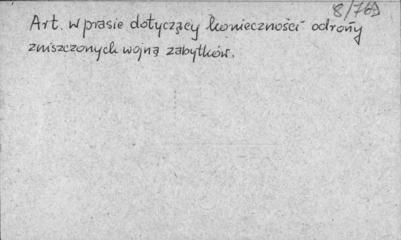 8/76
Art. w prasie dotyczący konieczności odnowy
zniszczonych wojną zabytków.